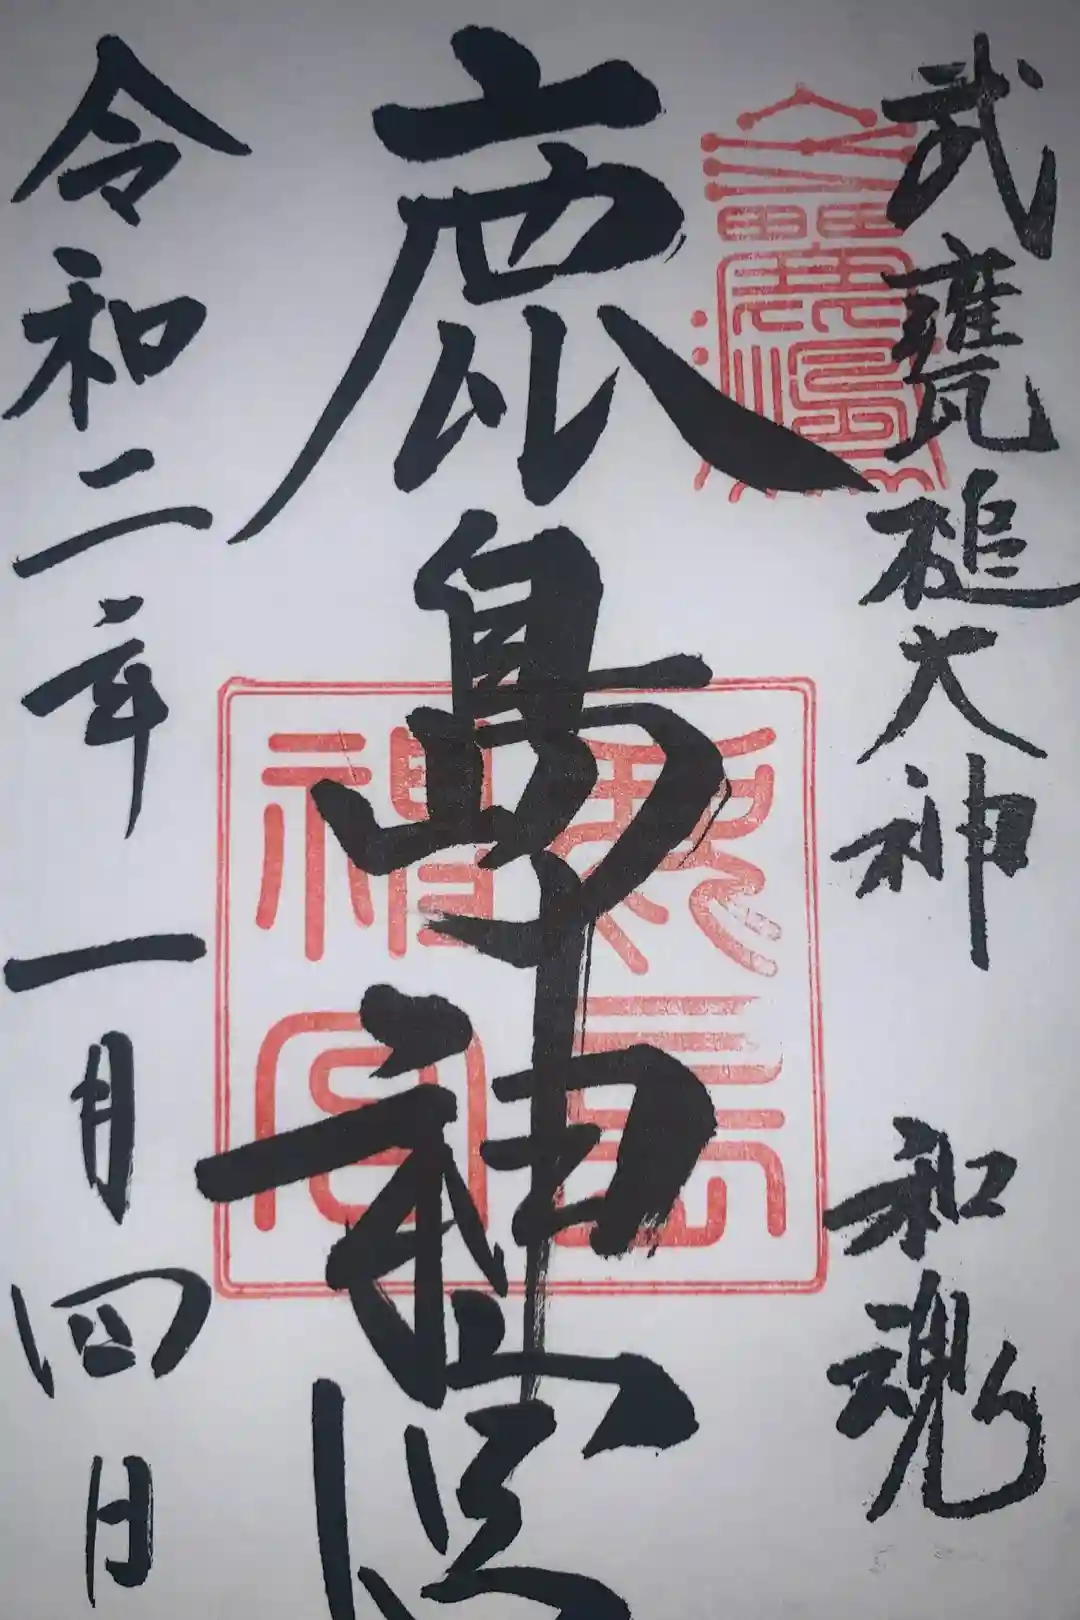 武甕槌大神 和魂
鹿島神宮
令和二年一月四日
鹿島
神宮